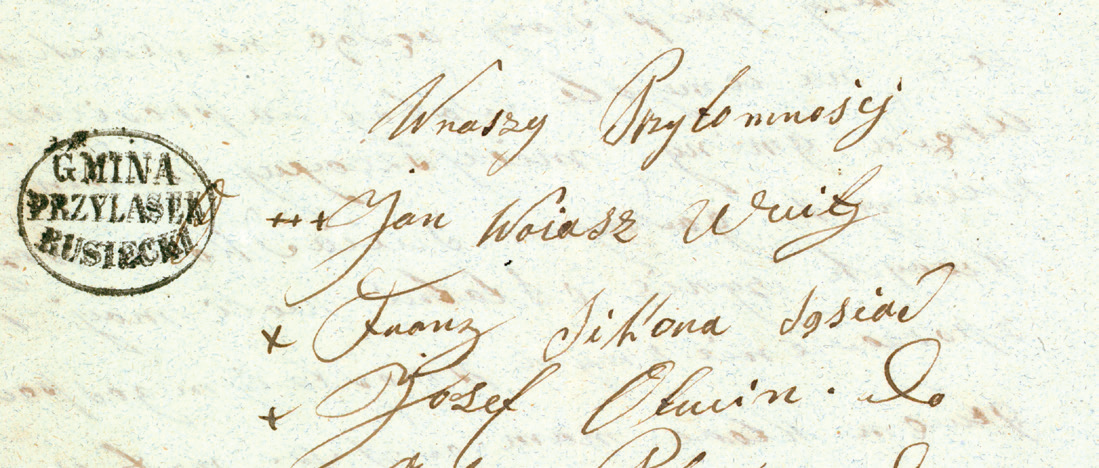 GMINA
PRZYLASEK
RUSIECKI
Wnaszy Przytomnościj
+++ Jan Woiasz Wuitz
+ Franz Sikona Sąsiad
+ Josef Otwin . do